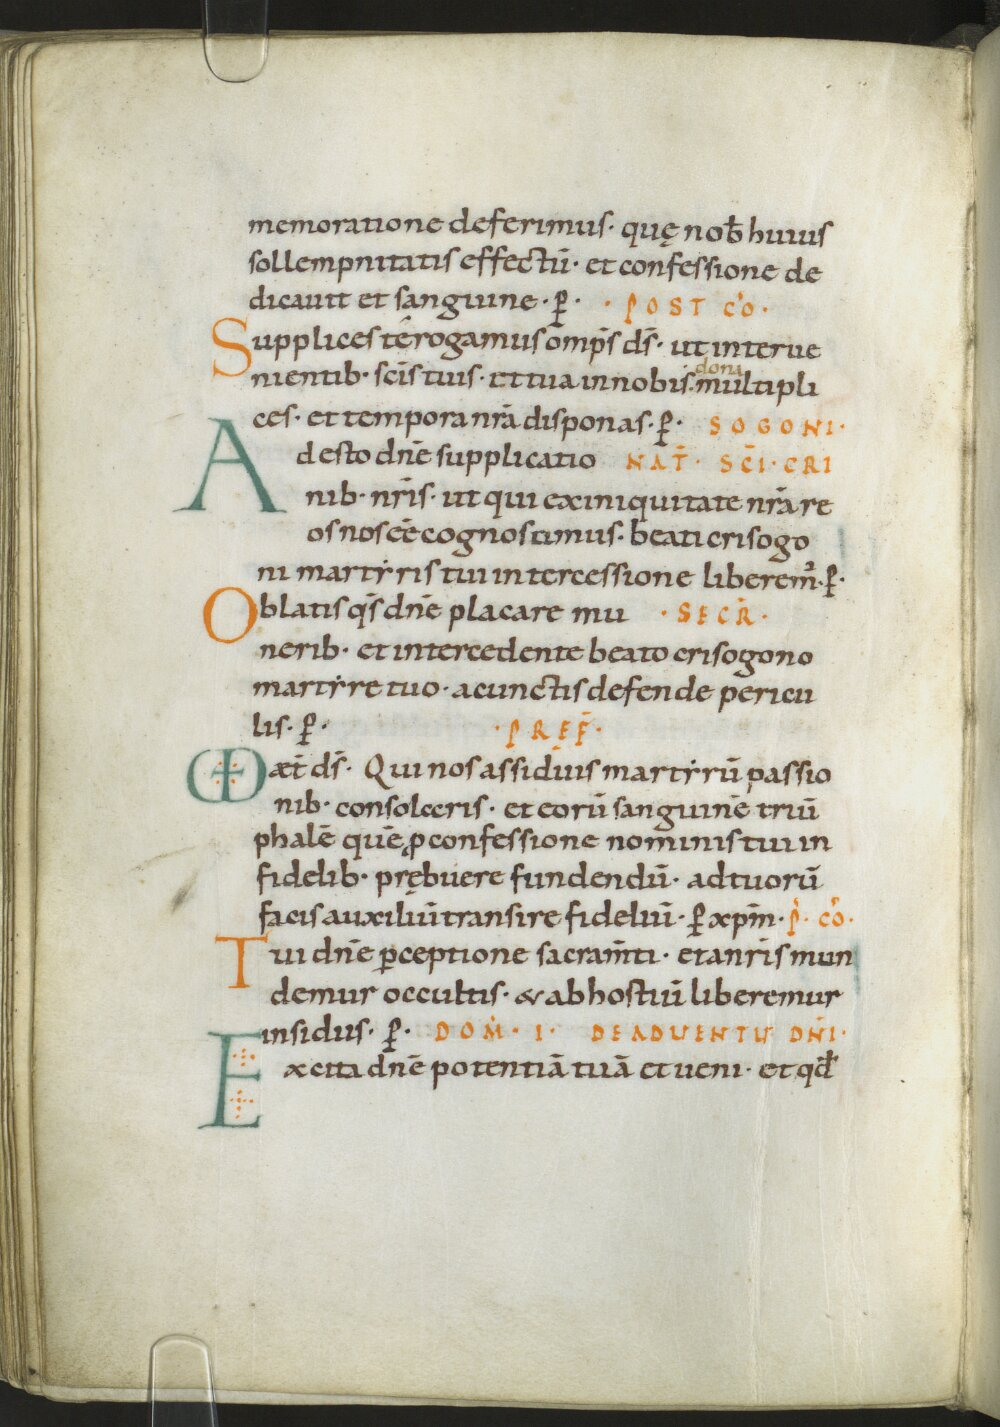 memoratione deferimus· quę nob̄ huius
sollempnitatis effectū· et confessione de
dicauit et sanguine· p̄· · POST CŌ·
Supplices tērogamus omp̄s d̄s· ut interue
nientib· sc̄is tuis· et tua in nobis· dona multipli
ces· et tempora nr̄a disponas· p̄· SOGONI·
Adesto dn̄e supplicatio NAT̄· SC̄I· CRI
nib· nr̄is· ut qui ex iniquitate nr̄a re
os nos eē cognoscimus· beati crisogo
ni martẏris tui intercessione liberem̄· p̄·
Oblatis qs̄ dn̄e placare mu · SECR̄·
nerib· et intercedente beato crisogono
martẏre tuo· a cunctis defende pericu
lis· p̄· · PREF̄·
VD æt̄ d̄s· Qui nos assiduis martẏrū passio
nib· consolaris· et eorū sanguinē triū
phalē quē p̄ confessione nominis tui in
fidelib· prębuere fundendū· ad tuorū
facis auxiliū transire fideliū· p̄ xpm̄· P̄· CŌ·
Tui dn̄e p̄ceptione sacram̄ti· et a nr̄is mun
demur occultis· & ab hostiū liberemur
insidiis· p̄· DOM̄· I· DE ADUENTU DN̄I·
Excita dn̄e potentiā tuā et ueni· et qđ